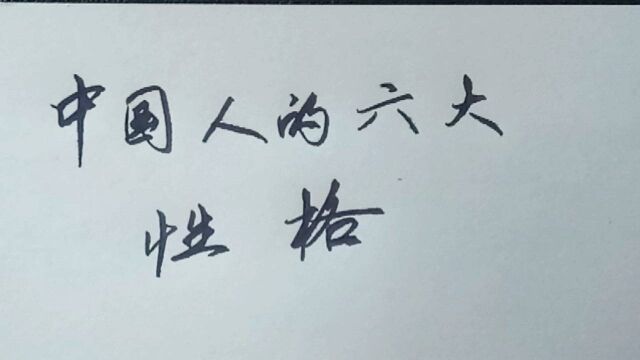 中国人的六大
性格